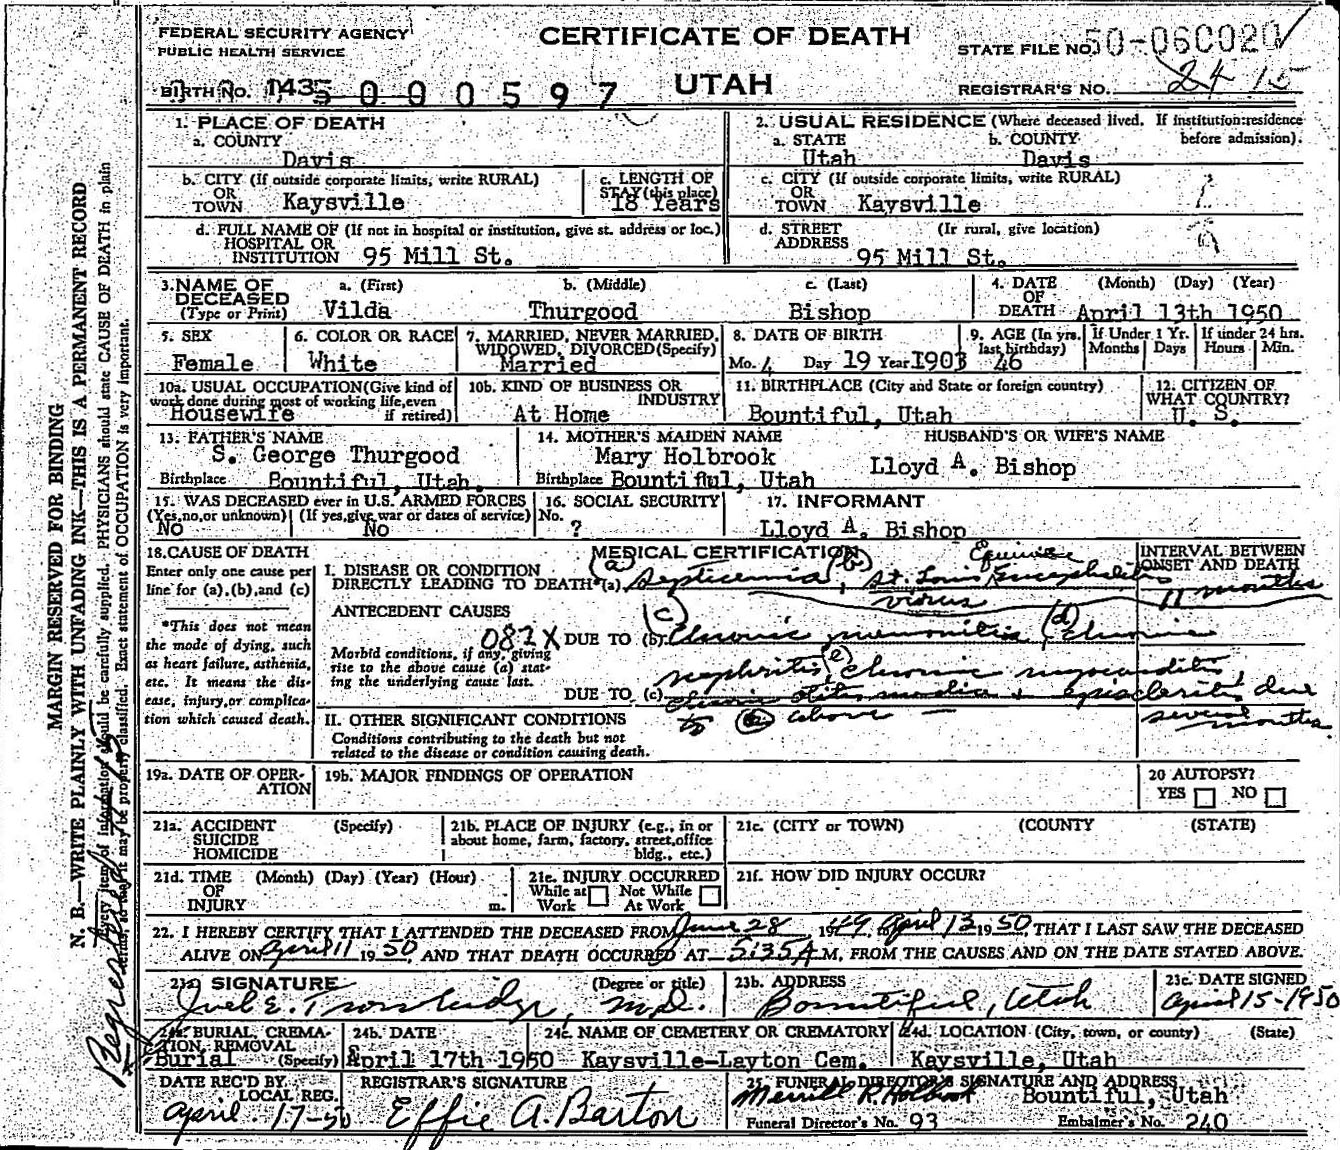 FEDERAL SECURITY AGENCY
PUBLIC HEALTH SERVICE
CERTIFICATE OF DEATH
STATE FILE NO. 50-060020
BIRTH NO. 1435 000597
UTAH
REGISTRAR'S NO. 24 15
1. PLACE OF DEATH
a. COUNTY
Davis
2. USUAL RESIDENCE (Where deceased lived. If institution:residence before admission).
a. STATE b. COUNTY
Utah Davis
b. CITY (If outside corporate limits, write RURAL)
OR
TOWN Kaysville
c. LENGTH OF
STAY (this place)
18 Years
c. CITY (If outside corporate limits, write RURAL)
OR
TOWN Kaysville
d. FULL NAME OF (If not in hospital or institution, give st. address or loc.)
HOSPITAL OR
INSTITUTION 95 Mill St.
d. STREET (If rural, give location)
ADDRESS 95 Mill St.
3. NAME OF a. (First) b. (Middle) c. (Last)
DECEASED
(Type or Print) Vilda Thurgood Bishop
4. DATE (Month) (Day) (Year)
OF
DEATH April 13th 1950
5. SEX
Female
6. COLOR OR RACE
White
7. MARRIED, NEVER MARRIED,
WIDOWED, DIVORCED (Specify)
Married
8. DATE OF BIRTH
Mo. 4 Day 19 Year 1903
9. AGE (In yrs. last birthday)
46
If Under 1 Yr.
Months Days
If under 24 hrs.
Hours Min.
10a. USUAL OCCUPATION (Give kind of
work done during most of working life, even
if retired)
Housewife
10b. KIND OF BUSINESS OR
INDUSTRY
At Home
11. BIRTHPLACE (City and State or foreign country)
Bountiful, Utah
12. CITIZEN OF
WHAT COUNTRY?
U. S.
13. FATHER'S NAME
S. George Thurgood
Birthplace Bountiful, Utah.
14. MOTHER'S MAIDEN NAME
Mary Holbrook
Birthplace Bountiful, Utah
HUSBAND'S OR WIFE'S NAME
Lloyd A. Bishop
15. WAS DECEASED ever in U.S. ARMED FORCES
(Yes, no, or unknown) (If yes, give war or dates of service)
No No
16. SOCIAL SECURITY
No. ?
17. INFORMANT
Lloyd A. Bishop
18. CAUSE OF DEATH
Enter only one cause per
line for (a), (b), and (c)
*This does not mean
the mode of dying, such
as heart failure, asthenia,
etc. It means the dis-
ease, injury, or complica-
tion which caused death.
MEDICAL CERTIFICATION
INTERVAL BETWEEN
ONSET AND DEATH
I. DISEASE OR CONDITION
DIRECTLY LEADING TO DEATH* (a) (a) Septicemia, (b) St. Louis Equine Encephalitis
virus
11 months
ANTECEDENT CAUSES
082X
DUE TO (b) (c) Chronic pneumonitis (d) Chronic
Morbid conditions, if any, giving
rise to the above cause (a) stat-
ing the underlying cause last.
nephritis (e) chronic myocarditis,
DUE TO (c) chronic otitis media + episcleritis due
to above
several
months.
II. OTHER SIGNIFICANT CONDITIONS
Conditions contributing to the death but not
related to the disease or condition causing death.
19a. DATE OF OPER-
ATION
19b. MAJOR FINDINGS OF OPERATION
20 AUTOPSY?
YES NO
21a. ACCIDENT (Specify)
SUICIDE
HOMICIDE
21b. PLACE OF INJURY (e.g., in or
about home, farm, factory, street, office
bldg., etc.)
21c. (CITY or TOWN) (COUNTY) (STATE)
21d. TIME (Month) (Day) (Year) (Hour)
OF
INJURY m.
21e. INJURY OCCURRED
While at Work Not While At Work
21f. HOW DID INJURY OCCUR?
22. I HEREBY CERTIFY THAT I ATTENDED THE DECEASED FROM June 28 1949, to April 13 1950, THAT I LAST SAW THE DECEASED
ALIVE ON April 11 1950, AND THAT DEATH OCCURRED AT 5:35 A M, FROM THE CAUSES AND ON THE DATE STATED ABOVE.
23a. SIGNATURE (Degree or title)
Joel E. Trowbridge, M.D.
23b. ADDRESS
Bountiful, Utah
23c. DATE SIGNED
April 15-1950
24a. BURIAL, CREMA-
TION, REMOVAL
Burial (Specify)
24b. DATE
April 17th 1950
24c. NAME OF CEMETERY OR CREMATORY
Kaysville-Layton Cem.
24d. LOCATION (City, town, or county) (State)
Kaysville, Utah
DATE REC'D BY
LOCAL REG.
April 17-50
REGISTRAR'S SIGNATURE
Effie A. Barton
25. FUNERAL DIRECTOR'S SIGNATURE AND ADDRESS
Merrill R. Holbrook Bountiful, Utah
Funeral Director's No. 93 Embalmer's No. 240
MARGIN RESERVED FOR BINDING
N. B.—WRITE PLAINLY WITH UNFADING INK—THIS IS A PERMANENT RECORD
Every item of information should be carefully supplied. PHYSICIANS should state CAUSE OF DEATH in plain
terms, so that it may be properly classified. Exact statement of OCCUPATION is very important.